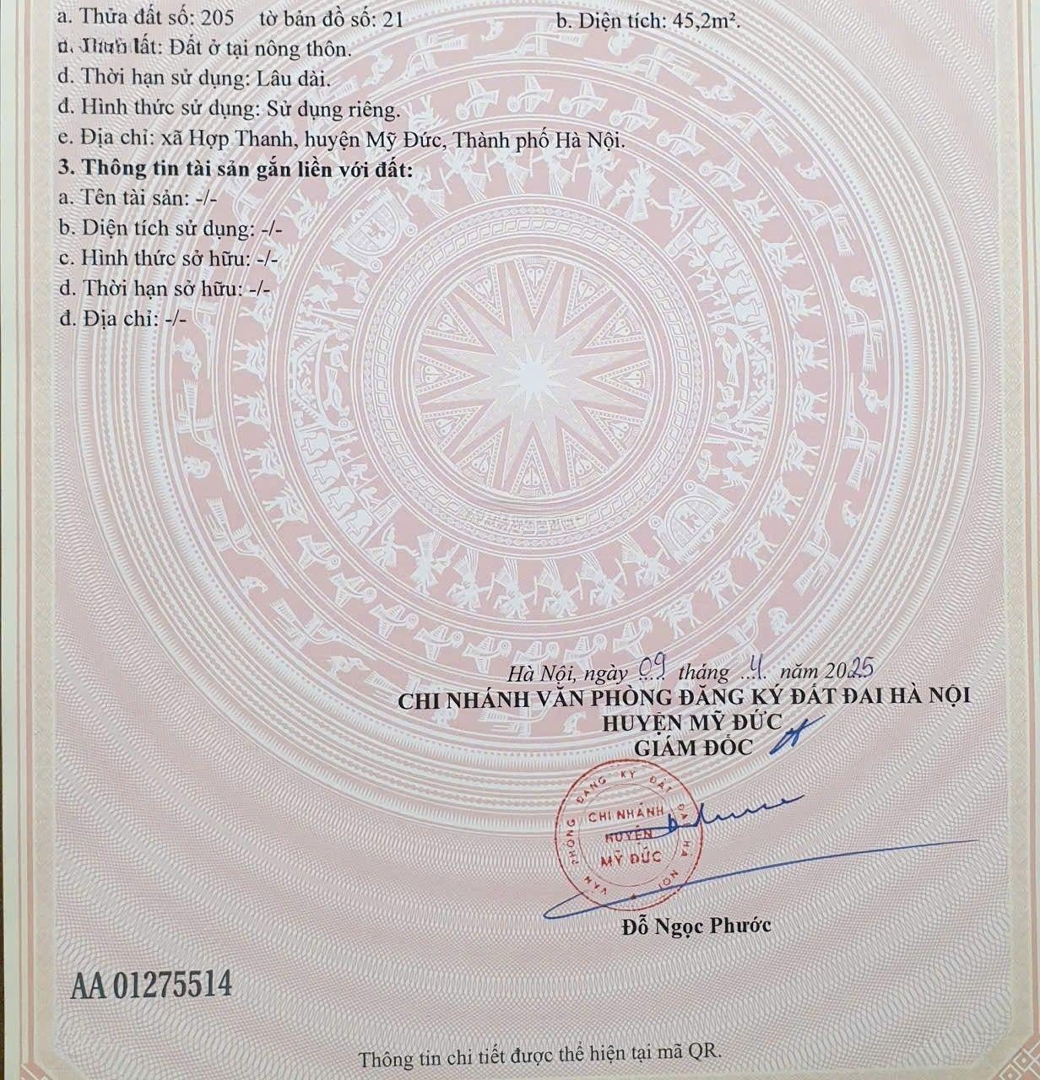 a. Thửa đất số: 205 tờ bản đồ số: 21 b. Diện tích: 45,2m².
đất: Đất ở tại nông thôn.
d. Thời hạn sử dụng: Lâu dài.
đ. Hình thức sử dụng: Sử dụng riêng.
e. Địa chỉ: xã Hợp Thanh, huyện Mỹ Đức, Thành phố Hà Nội.
3. Thông tin tài sản gắn liền với đất:
a. Tên tài sản: -/-
b. Diện tích sử dụng: -/-
c. Hình thức sở hữu: -/-
d. Thời hạn sở hữu: -/-
đ. Địa chỉ: -/-
Hà Nội, ngày 09 tháng 4 năm 2025
CHI NHÁNH VĂN PHÒNG ĐĂNG KÝ ĐẤT ĐAI HÀ NỘI
HUYỆN MỸ ĐỨC
GIÁM ĐỐC
VĂN PHÒNG ĐĂNG KÝ ĐẤT ĐAI HÀ NỘI
CHI NHÁNH
HUYỆN
MỸ ĐỨC
Đỗ Ngọc Phước
AA 01275514
Thông tin chi tiết được thể hiện tại mã QR.